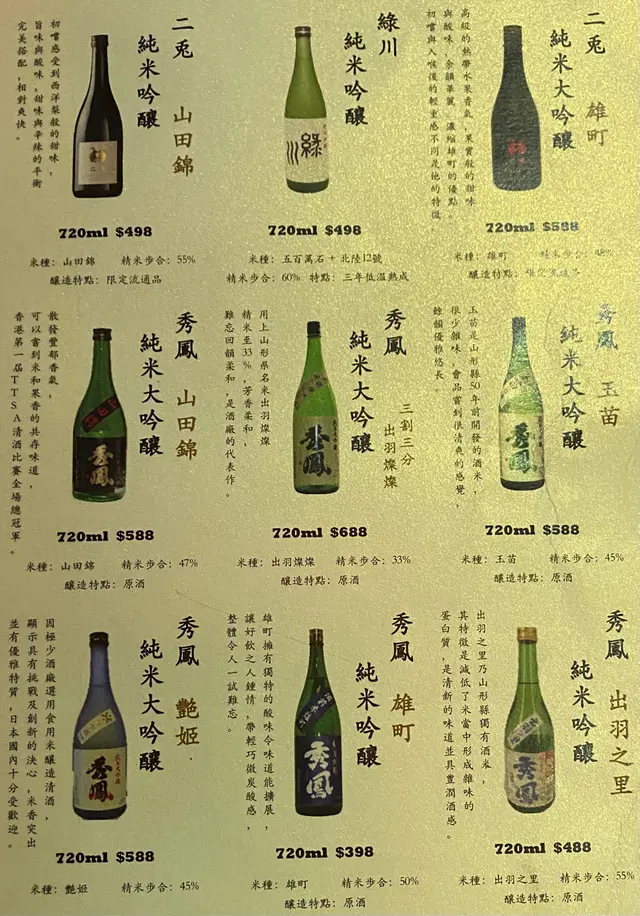 二兎 山田錦
純米吟釀
初嚐感受到西洋梨般的甜味,
旨味與酸味,甜味與辛辣的平衡
完美搭配,相對爽快。
720ml $498
米種: 山田錦 精米步合: 55%
釀造特點: 限定流通品
綠川
純米吟釀
綠川
720ml $498
米種: 五百萬石 + 北陸12號
精米步合: 60% 特點: 三年低溫熟成
二兎 雄町
純米大吟釀
高級的熱帶水果香氣,果實般的甜味
與酸味,余韻華麗。濃縮雄町的優點。
初嚐與入喉後的輕重感不同是他的特徵。
720ml $588
米種: 雄町 精米步合:
釀造特點: 限定流通品
秀鳳 山田錦
純米大吟釀
散發豐郁香氣,
可以嘗到米和果香的共存味道,
香港第一屆TTSA清酒比賽全場總冠軍。
山田錦
秀鳳
720ml $588
米種: 山田錦 精米步合: 47%
釀造特點: 原酒
秀鳳 三割三分
出羽燦燦
純米大吟釀
用上山形縣名米出羽燦燦
精米至33%,芳香柔和,
難忘回韻柔和,是酒廠的代表作。
秀鳳
720ml $688
米種: 出羽燦燦 精米步合: 33%
釀造特點: 原酒
秀鳳 玉苗
純米大吟釀
玉苗是山形縣50年前開發的酒米,
很少雜味,會品嘗到很清爽的感覺,
餘韻優雅悠長。
秀鳳
720ml $588
米種: 玉苗 精米步合: 45%
釀造特點: 原酒
秀鳳 艷姬
純米大吟釀
因極少酒廠選用食用米釀造清酒,
顯示具有挑戰及創新的決心,米香突出
並有優雅特質,日本國內十分受歡迎。
秀鳳
720ml $588
米種: 艷姬 精米步合: 45%
秀鳳 雄町
純米吟釀
雄町擁有獨特的酸味令味道能擴展,
讓好飲之人鍾情,帶輕巧微炭酸感,
整體令人一試難忘。
秀鳳
720ml $398
米種: 雄町 精米步合: 50%
釀造特點: 原酒
秀鳳 出羽之里
純米吟釀
出羽之里乃山形縣獨有酒米,
其特徵是減低了米當中形成雜味的
蛋白質,是清新的味道並具豐潤酒感。
秀鳳
720ml $488
米種: 出羽之里 精米步合: 55%
釀造特點: 原酒